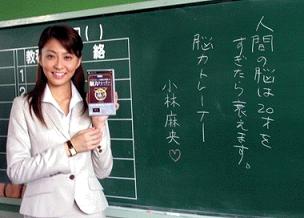 人間の脳は20才を
すぎたら衰えます。
脳力トレーナー
小林麻央♡
教
( )
絡
1
2
3